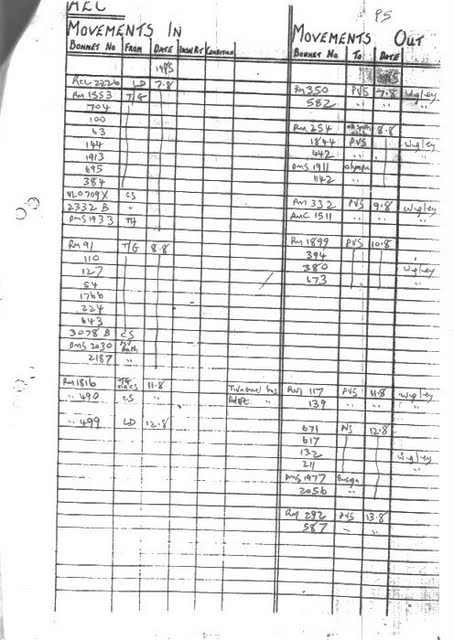 AEC
P5
MOVEMENTS IN
MOVEMENTS OUT
BONNET No FROM DATE INSERT CONDITION
BONNET No TO DATE
1985
1985
RCL 2226 LD 7.8
RM 350 PVS 7.8 Wigley
RM 1553 T/G
582 " " "
704
100
RM 254 8.8
63
1844 PVS Wigley
144
442 " "
1913
DMS 1911 Olympic
695
1142 "
384
VLO709X CS
RM 332 PVS 9.8 Wigley
2332 B "
RMC 1511 " "
DMS 1933 TH
RM 91 T/G 8.8
RM 1899 PVS 10.8
110
394 "
127
380 Wigley
54
673 "
1766
224
643
3078 B CS
DMS 2030
2187 "
RM 1816 11.8
RM 117 PVS 11.8 Wigley
" 490 CS "
139 " " "
" 499 LD 12.8
671 PVS 12.8
617
132 Wigley
211 "
DMS 1977 Ensign
2056 "
RM 292 PVS 13.8
587 " "